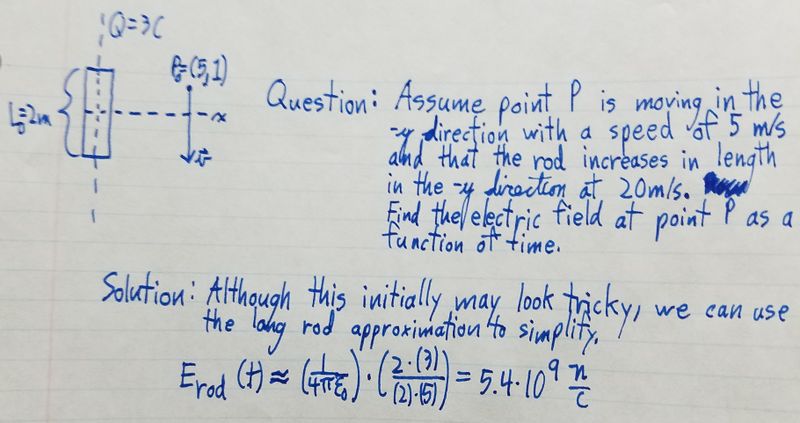 Q=3C
P₀=(5,1)
L₀=2m
x
v⃗
Question: Assume point P is moving in the
-y direction with a speed of 5 m/s
and that the rod increases in length
in the -y direction at 20m/s.
Find the electric field at point P as a
function of time.
Solution: Although this initially may look tricky, we can use
the long rod approximation to simplify.
E_rod (t) ≈ (1/4πε₀)·(2·(3)/(2)·(5)) = 5.4·10⁹ n/C